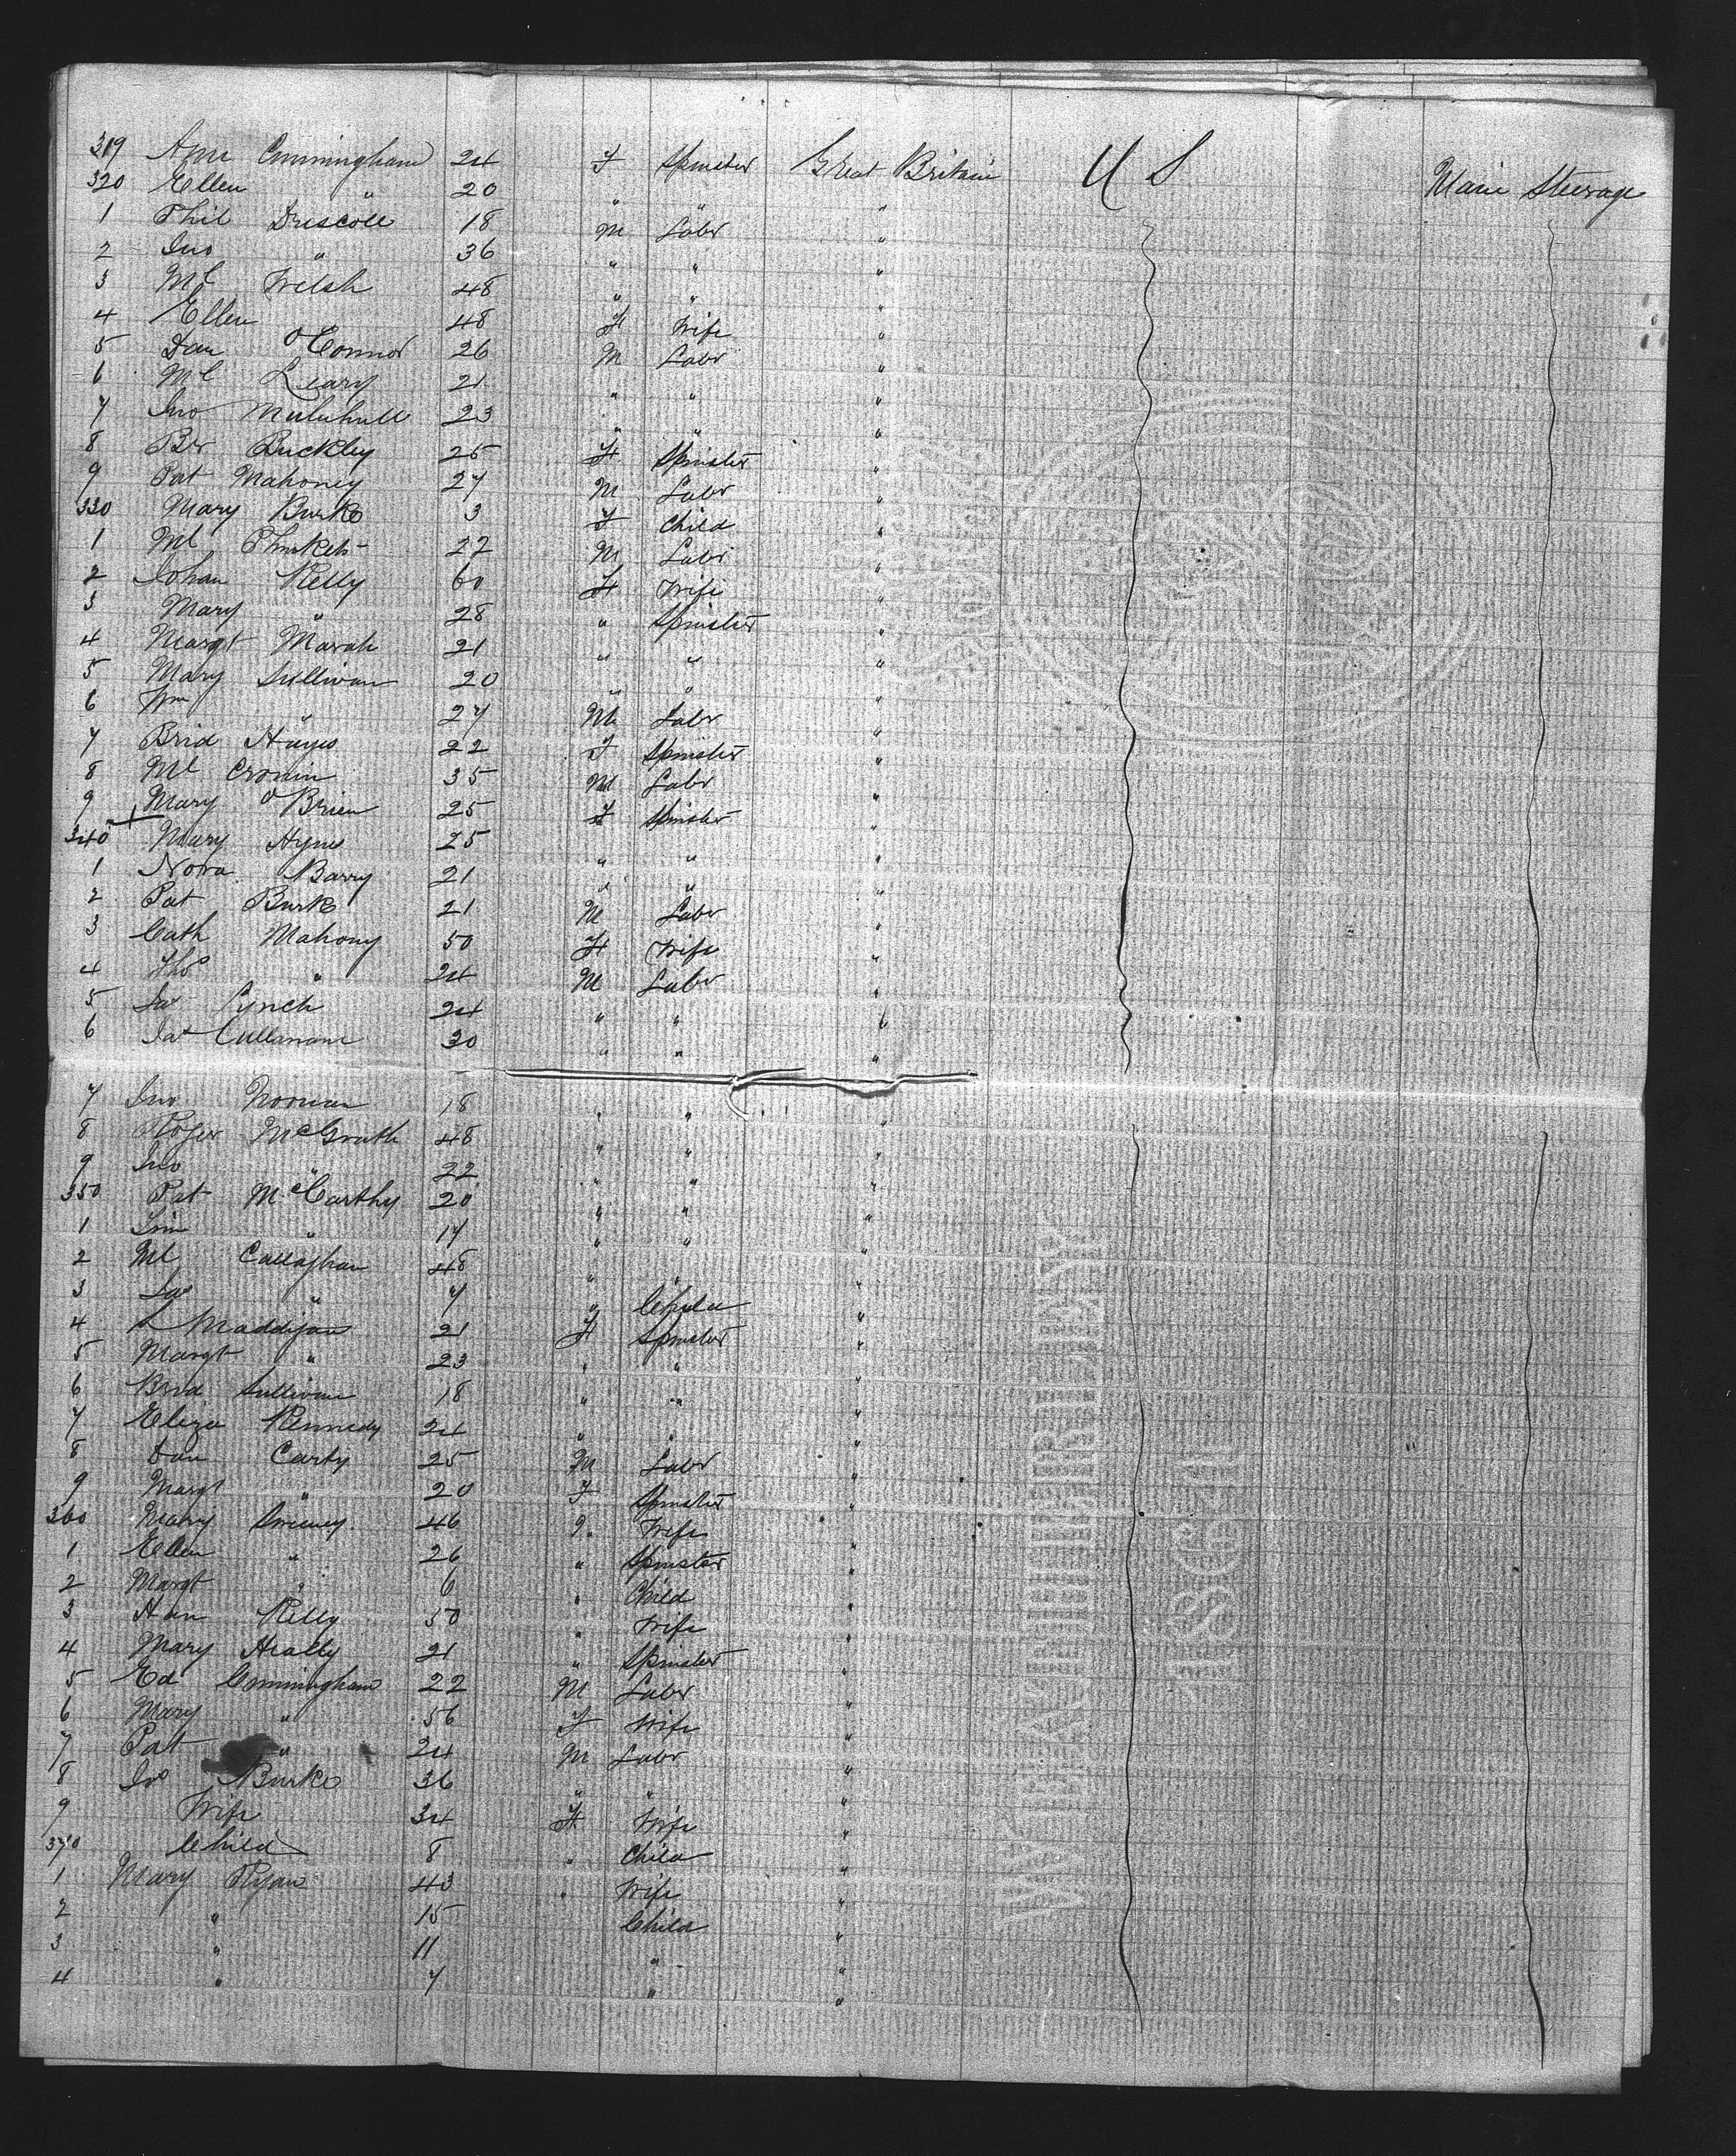 319 Ann Cunningham 24 F Spinster Great Britain U S Main Steerage
320 Ellen " 20 " " "
1 Phil Driscoll 18 M Labr "
2 Jno " 36 " " "
3 Ml Welsh 48 " " "
4 Ellen 48 F Wife "
5 Dan O'Connor 26 M Labr "
6 Ml Leary 21 " " "
7 Jno 23 " " "
8 Br Buckley 25 F Spinster "
9 Pat Mahoney 27 M Labr "
330 Mary Burke 3 F Child "
1 Ml 27 M Labr "
2 Johan Kelly 60 F Wife "
3 Mary " 28 " Spinster "
4 Margt Marah 21 " " "
5 Mary Sullivan 20 " " "
6 Wm " 27 M Labr "
7 Brid Hayes 22 F Spinster "
8 Ml Cronin 35 M Labr "
9 Mary O'Brien 25 F Spinster "
340 Mary Hynes 25 " " "
1 Nora Barry 21 " " "
2 Pat Burke 21 M Labr "
3 Cath Mahony 50 F Wife "
4 Thos " 24 M Labr "
5 Jas Lynch 24 " " "
6 Jas Cullanane 30 " " "
7 Jno Noonan 18 " " "
8 Roger McGrath 48 " " "
9 Jno " 22 " " "
350 Pat McCarthy 20 " " "
1 Tim " 17 " " "
2 Ml Callaghan 48 " " "
3 Jas " 7 " Child "
4 Maddigan 21 F Spinster "
5 Margt " 23 " " "
6 Brid Sullivan 18 " " "
7 Eliza Kennedy 24 " " "
8 Dan Carty 25 M Labr "
9 Margt " 20 F Spinster "
360 Mary Sweeney 46 " Wife "
1 Ellen " 26 " Spinster "
2 Margt " 6 " Child "
3 Han Kelly 50 " Wife "
4 Mary Healy 21 " Spinster "
5 Ed Cunningham 22 M Labr "
6 Mary " 56 F Wife "
7 Pat " 24 M Labr "
8 Jno Burke 36 " " "
9 Wife 34 F Wife "
370 Child 8 " Child "
1 Mary Ryan 43 " Wife "
2 " 15 Child "
3 " 11 " "
4 " 7 " "